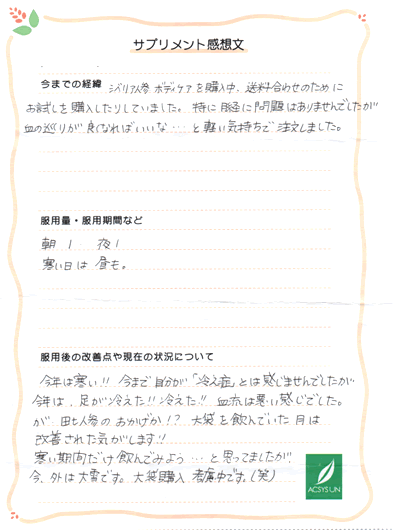 サプリメント感想文
今までの経緯 シベリア人参 ボディケアを購入中、送料合わせのために
お試しを購入したりしていました。特に 問題はありませんでしたが
血の巡りが良くなればいいな…と軽い気持ちで注文しました。
服用量・服用期間など
朝 1 夜 1
寒い日は 昼も。
服用後の改善点や現在の状況について
今年は寒い!! 今まで自分が「冷え症」とは感じませんでしたが
今年は、足が冷えた!! 冷えた!! 血流は悪い感じでした。
が 田七人参のおかげか!? 大袋を飲んでいた月は
改善された気がします!!
寒い期間だけ飲んでみよう…と思ってましたが
今、外は大雪です。大袋購入 考慮中です。(笑)
ACSYSUN